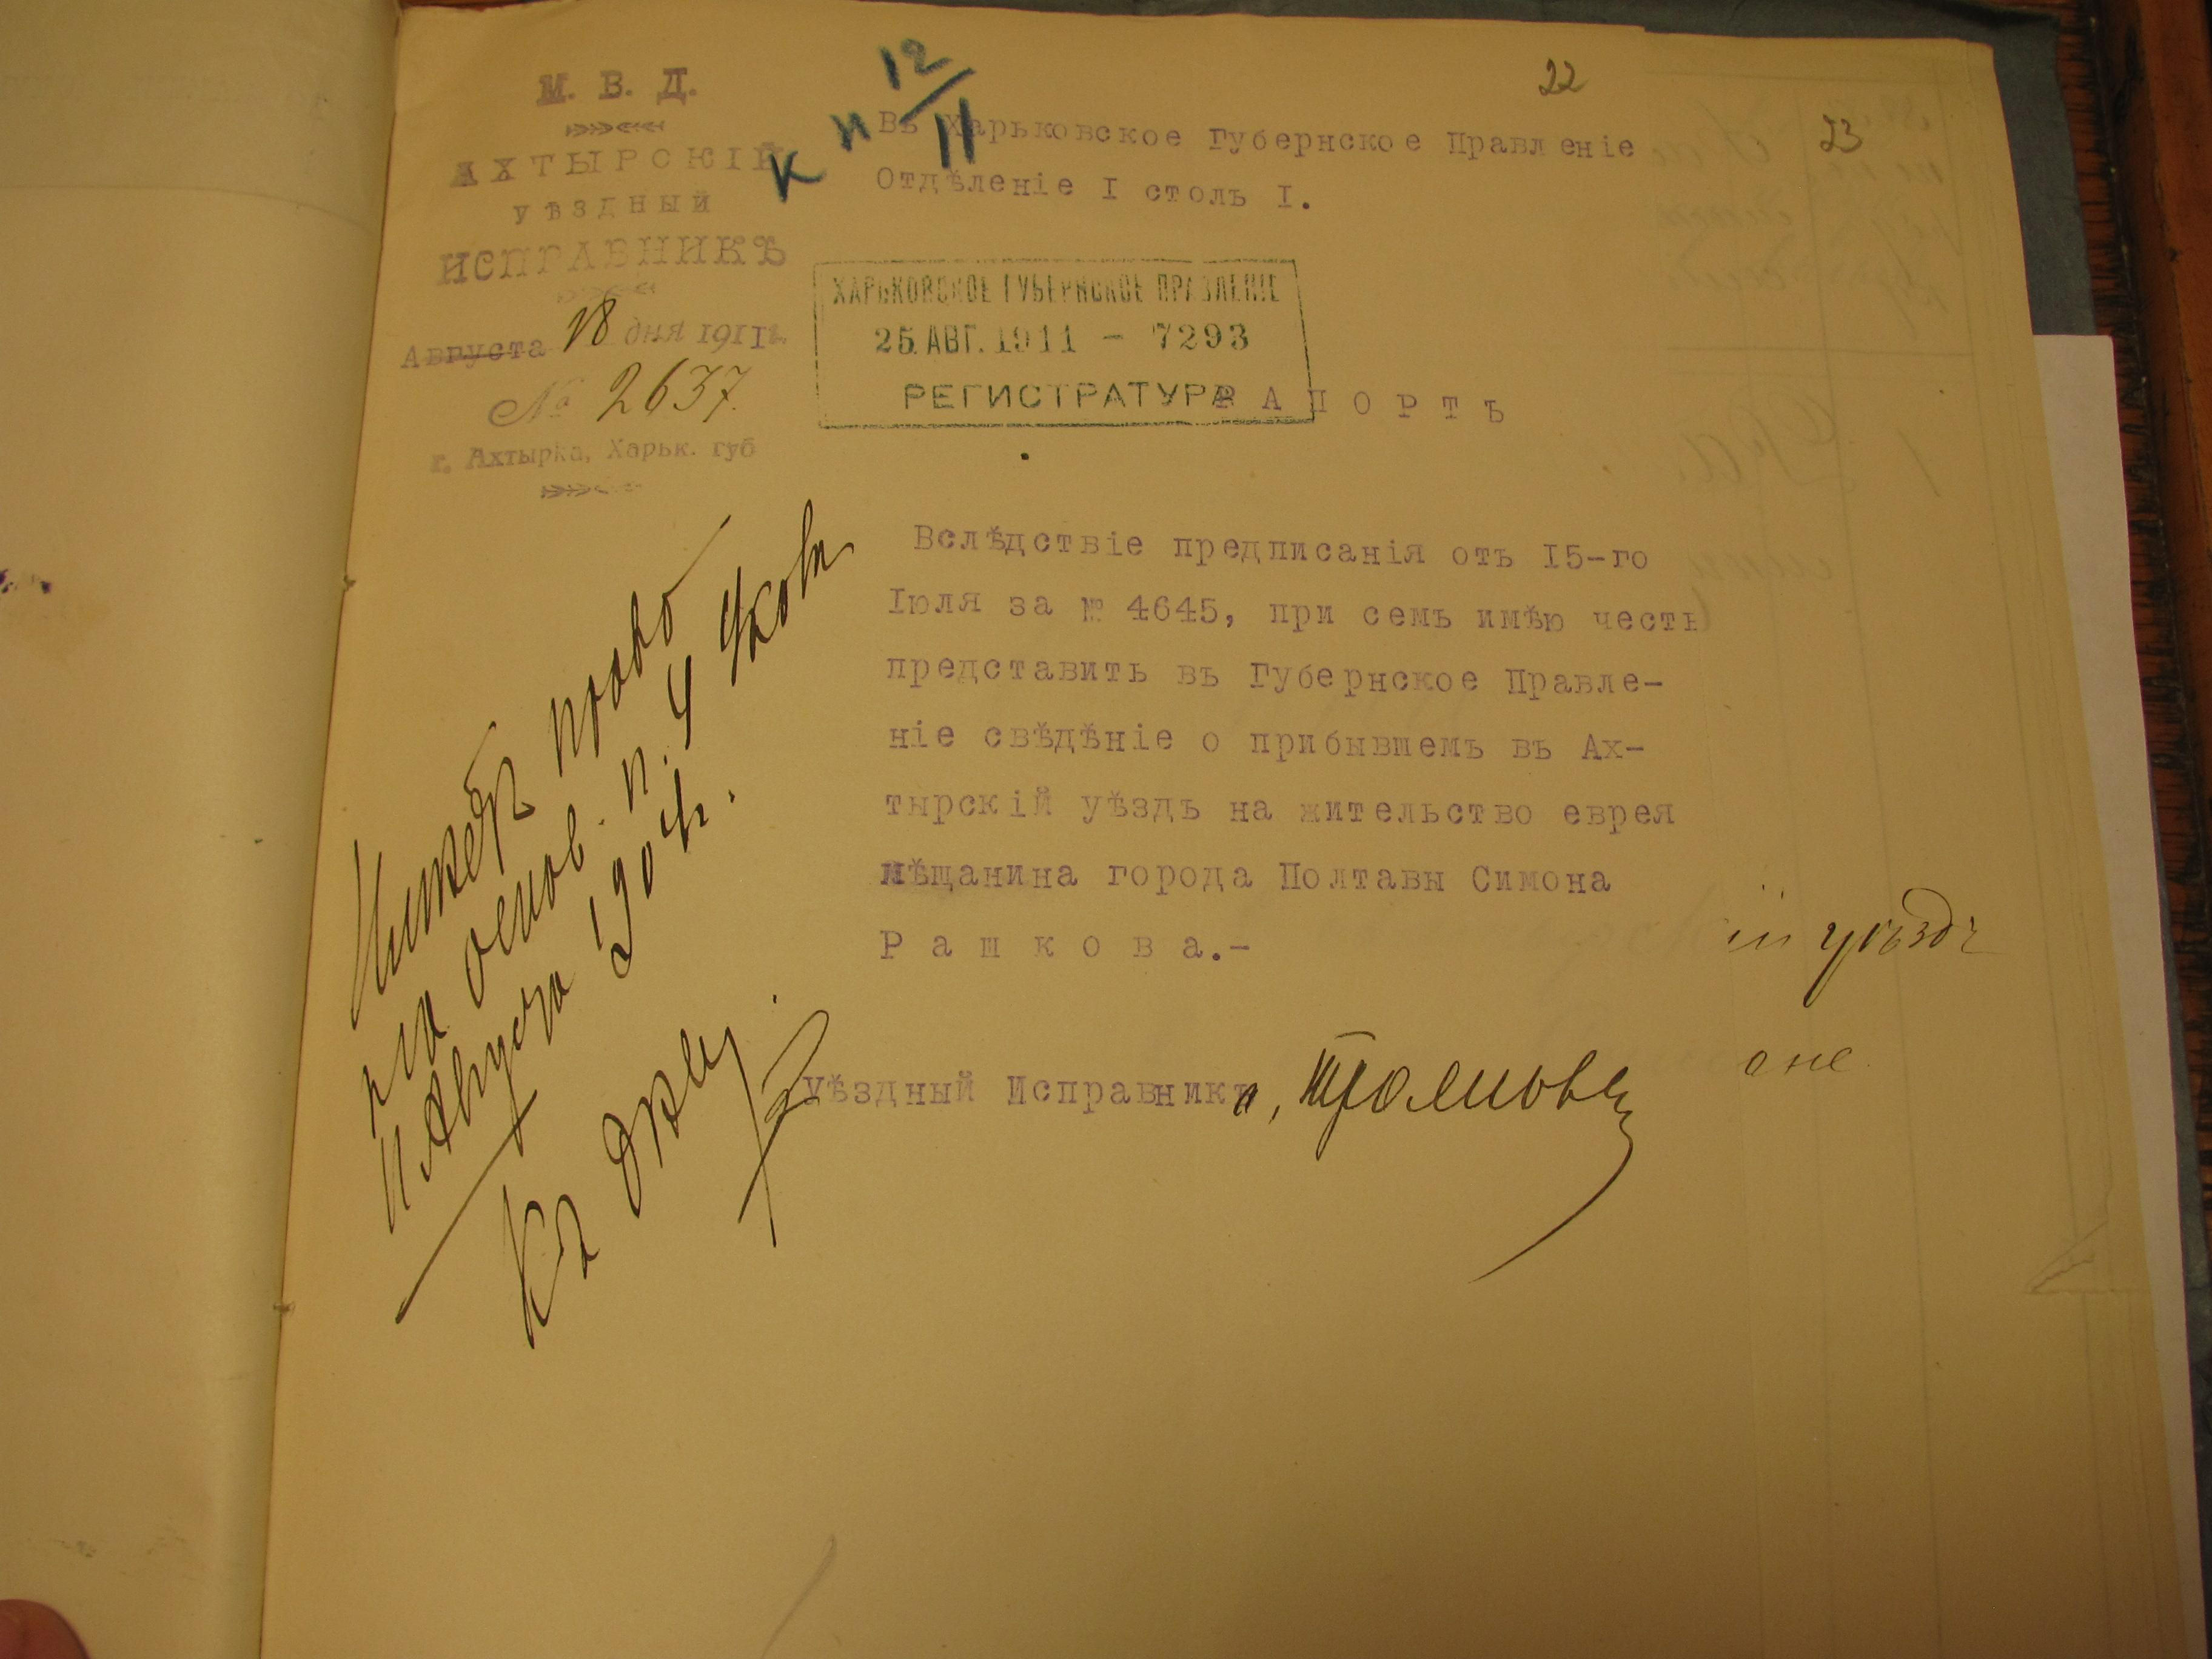 М. В. Д.
АХТЫРСКІЙ
УѢЗДНЫЙ
ИСПРАВНИКЪ
Августа 18 дня 1911 г.
№ 2637.
г. Ахтырка, Харьк. губ
12/11
к н
22
23
Въ Харьковское Губернское Правленіе
Отдѣленіе I столъ I.
ХАРЬКОВСКОЕ ГУБЕРНСКОЕ ПРАВЛЕНІЕ
25 АВГ. 1911 - 7293
РЕГИСТРАТУРА
РАПОРТЪ
Вслѣдствіе предписанія отъ I5-го
Іюля за № 4645, при семъ имѣю честь
представить въ Губернское Правле-
ніе свѣдѣніе о прибывшемъ въ Ах-
тырскій уѣздъ на жительство еврея
мѣщанина города Полтавы Симона
Рашкова.-
Уѣздный Исправникъ,
Имѣетъ право
на основ. п. 4 Указа
11 Августа 1904 г.
Къ дѣлу
ій уѣздъ